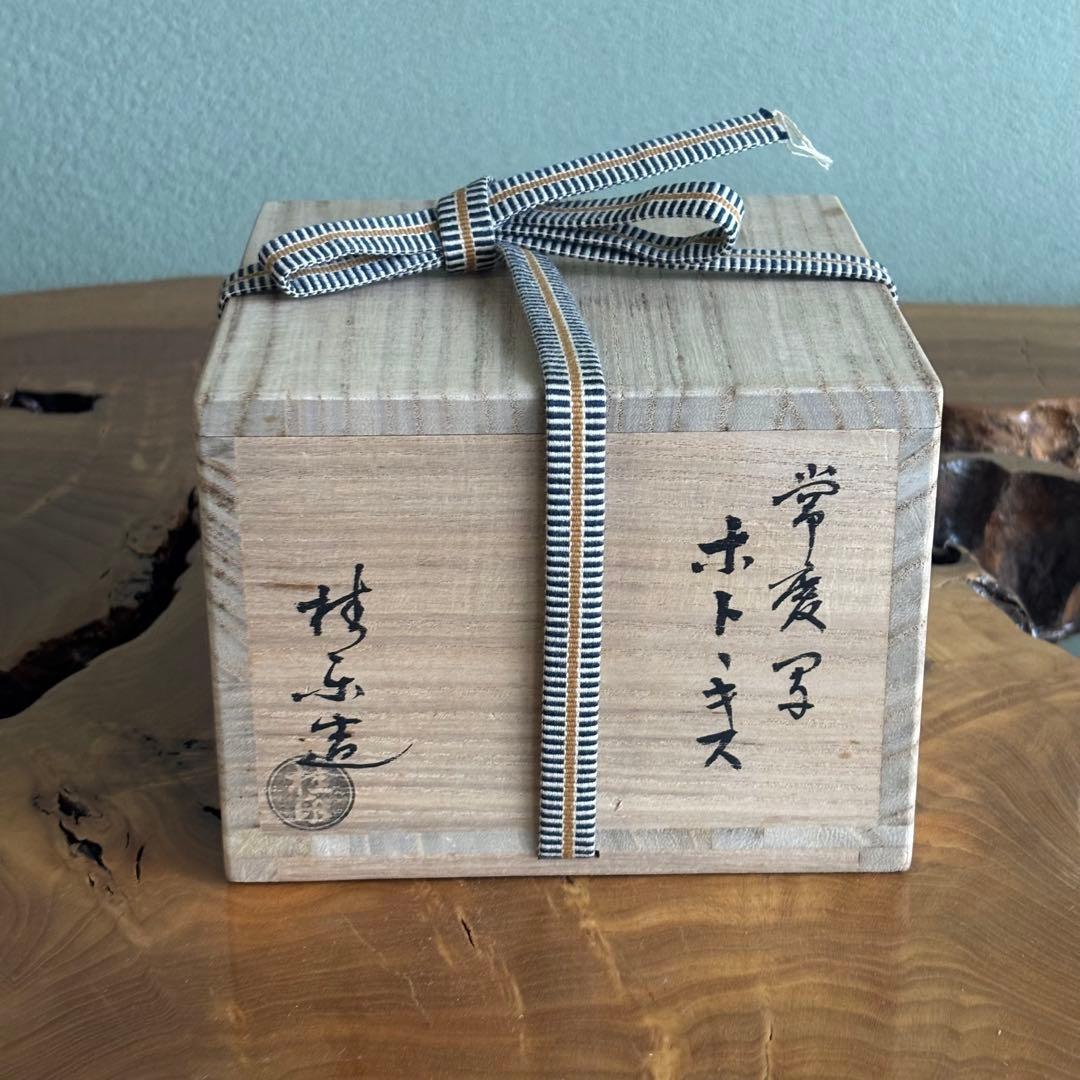 常慶写
ホトヽキス
桂楽造